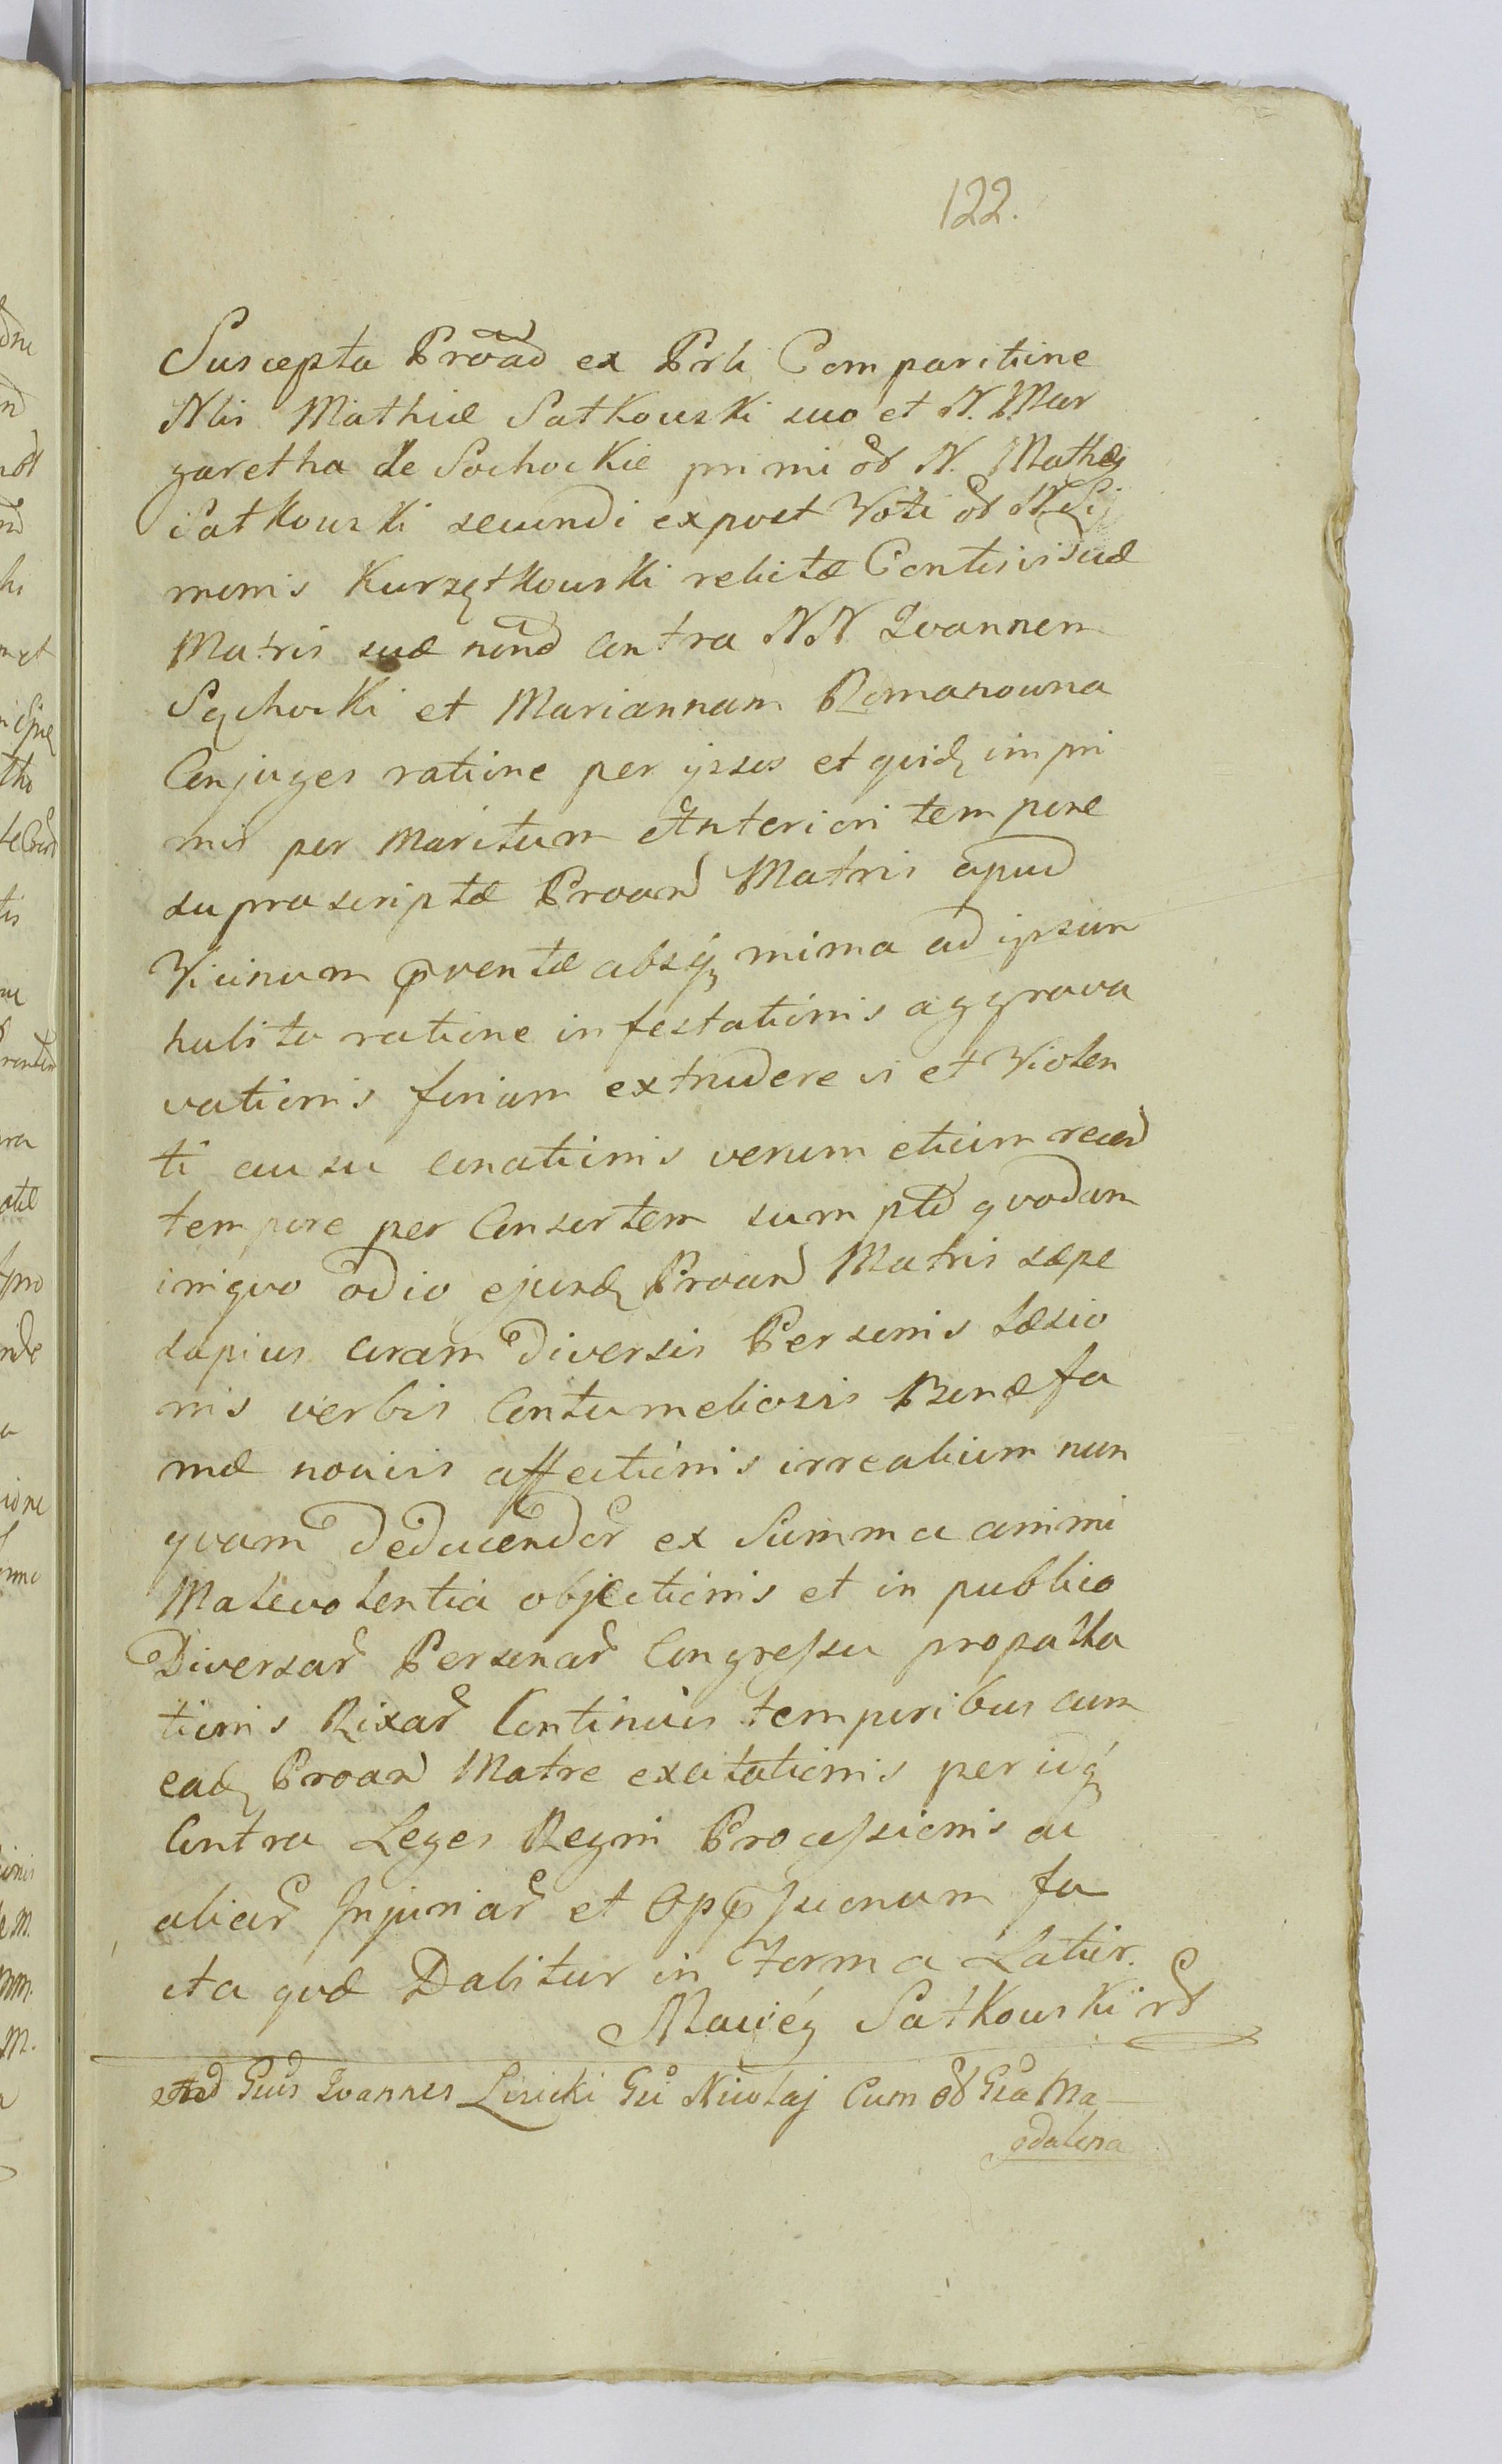 122.
Suscepta Proãd ex Prli Comparitione
Nlis Mathiæ Satkowski suo et N. Mar
garetha de Sochockie primi od N. Mathæj
Satkowski secundi expost Voti od N. Sy
monis Kurzątkowski relictæ Contisis suæ
Matris suæ nond contra NN Ioannem
Sąchocki et Mariannam Romanowna
Conjuges ratione per ipsos et quidę impri
mis per Maritum Anteriori tempore
suprascriptæ Proand Matris apud
Vicinum pventæ absqę mima ad ipsum
habita ratione infestationis aggrava
vationis foriam extrudere vi et Violen
ti ausu conationis verum etiam recend
tempore per Consortem sumptd quodam
iniquo odio ejusdę Proand Matris sæpe
sapius coram Diversis Personis Læsio
nis verbis Contumeliosis Bonæ fa
mæ nocivis affectionis irrealium nun
quam Deducendor ex Summa animi
Malevolentia objectionis et in publico
Diversar Personar Congressu propalla
tionis Rixar Continuis temporibus cum
eadę Proand Matre excitationis per idqę
Contra Leges Regni Processionis ac
aliar Injuriar et Oppssionum fa
cta quæ Dabitur in Forma Latior.
Maciéy Satkowski
Gsus Ioannes Lisicki Gsi Nicolaj Cum od Gsa Ma-
gdalena